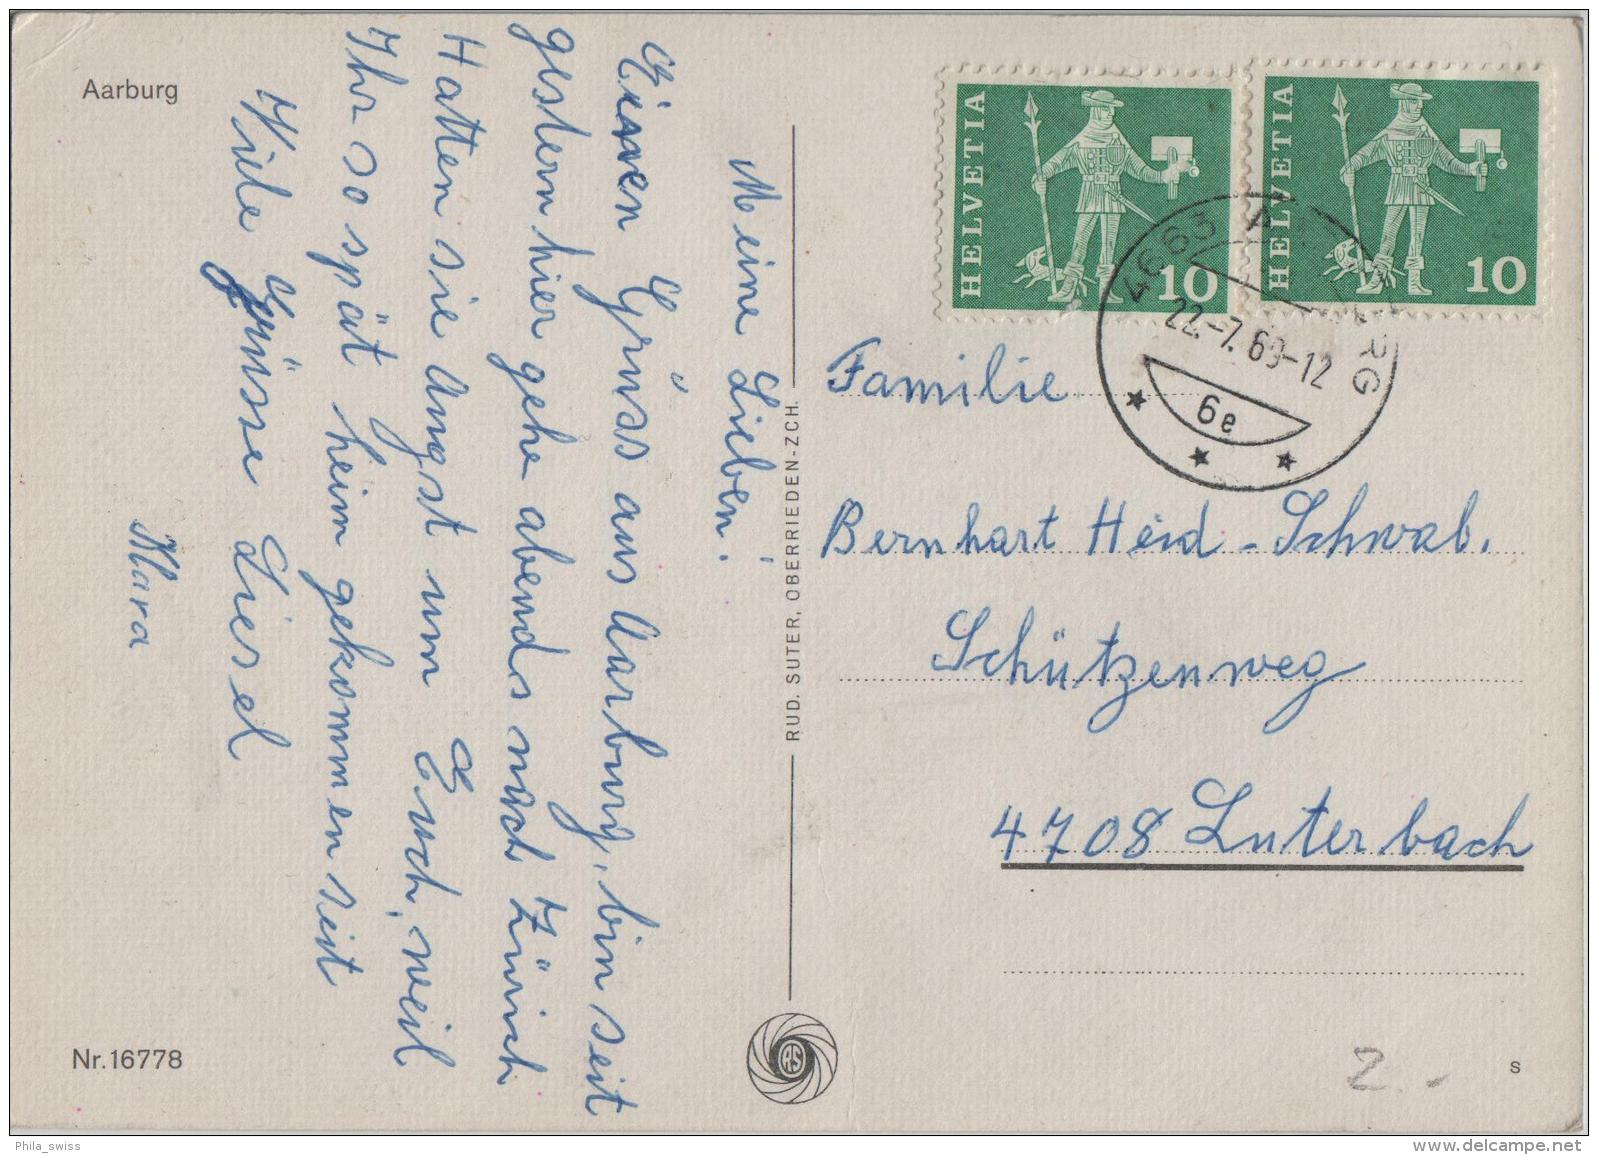 Aarburg
Meine Lieben!
Einen Gruss aus Aarburg, bin seit
gestern hier gehe abends nach Zürich
Hatten sie Angst um Euch, weil
Ihr so spät heim gekommen seit
Viele Grüsse Liesel
Klara
Nr.16778
RUD. SUTER, OBERRIEDEN-ZCH.
RS
HELVETIA
10
HELVETIA
10
4663 A RG
22.-7.69-12
6e
Familie
Bernhart Heid-Schwab.
Schützenweg
4708 Luterbach
2.-
s
Phila_swiss
www.delcampe.net